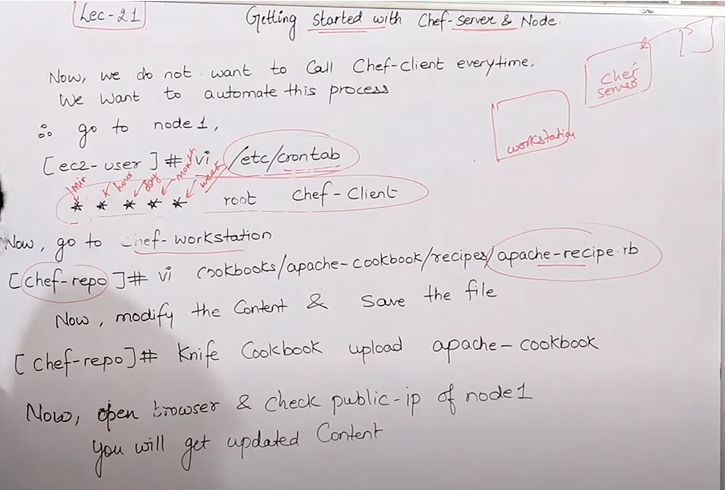 Lec-21
Getting started with Chef-server & Node
Now, we do not want to Call Chef-Client everytime.
We Want to automate this process
∴ go to node1,
[ec2-user]# vi /etc/crontab
min hour day month week
* * * * * root Chef-Client
Now, go to Chef-workstation
[chef-repo]# vi cookbooks/apache-cookbook/recipes/apache-recipe.rb
Now, modify the Content & Save the file
[chef-repo]# Knife Cookbook upload apache-cookbook
Now, open browser & check public-ip of node1
You will get updated Content
Chef
server
workstation